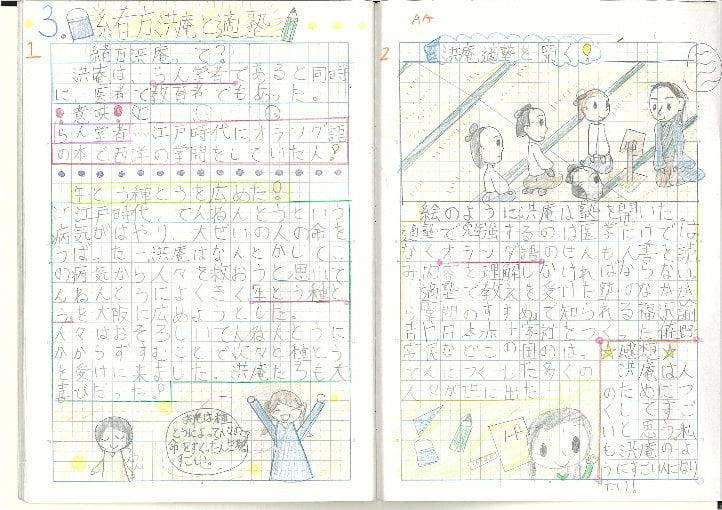 3. 緒方洪庵と適塾
1
緒方洪庵って?
洪庵は、らん学者であると同時
に、医者で教育者でもあった。
意味
らん学者…江戸時代に、オランダ語
の本で西洋の学問をしていた人!
牛とう種とうを広めた!
江戸時代、てんねんとうという
病気がはやり、大ぜいの人の命を
うばった…洪庵はなんとかしてこ
の病気から人々を救おうと思いて
んねんとうによくきく牛とう種と
うを大阪に広めようとした。
人々はおそろしいてんねんとうに
かからずすむことで次々と種とう
を受けに来ました。洪庵たちも大
喜びだった。
洪庵は種
とうによって
命をすくったん
すごい。
AA
2
洪庵、適塾を開く!
絵のように洪庵は塾を開いた。
適塾で勉強するのは医学だけでは
なくオランダ語のせんもん書を読
み、内容を理解しなければならない
適塾で教えを受けた
学問のすすめで知られる福沢諭
吉や日本赤十字社をつくった佐野
常民などこの国の
てんにつくした多くの
人々が世に出た。
感想
洪庵は人
のためにつ
くしてすご
いと思う私
も洪庵のよ
うにすごい人になり
たい!